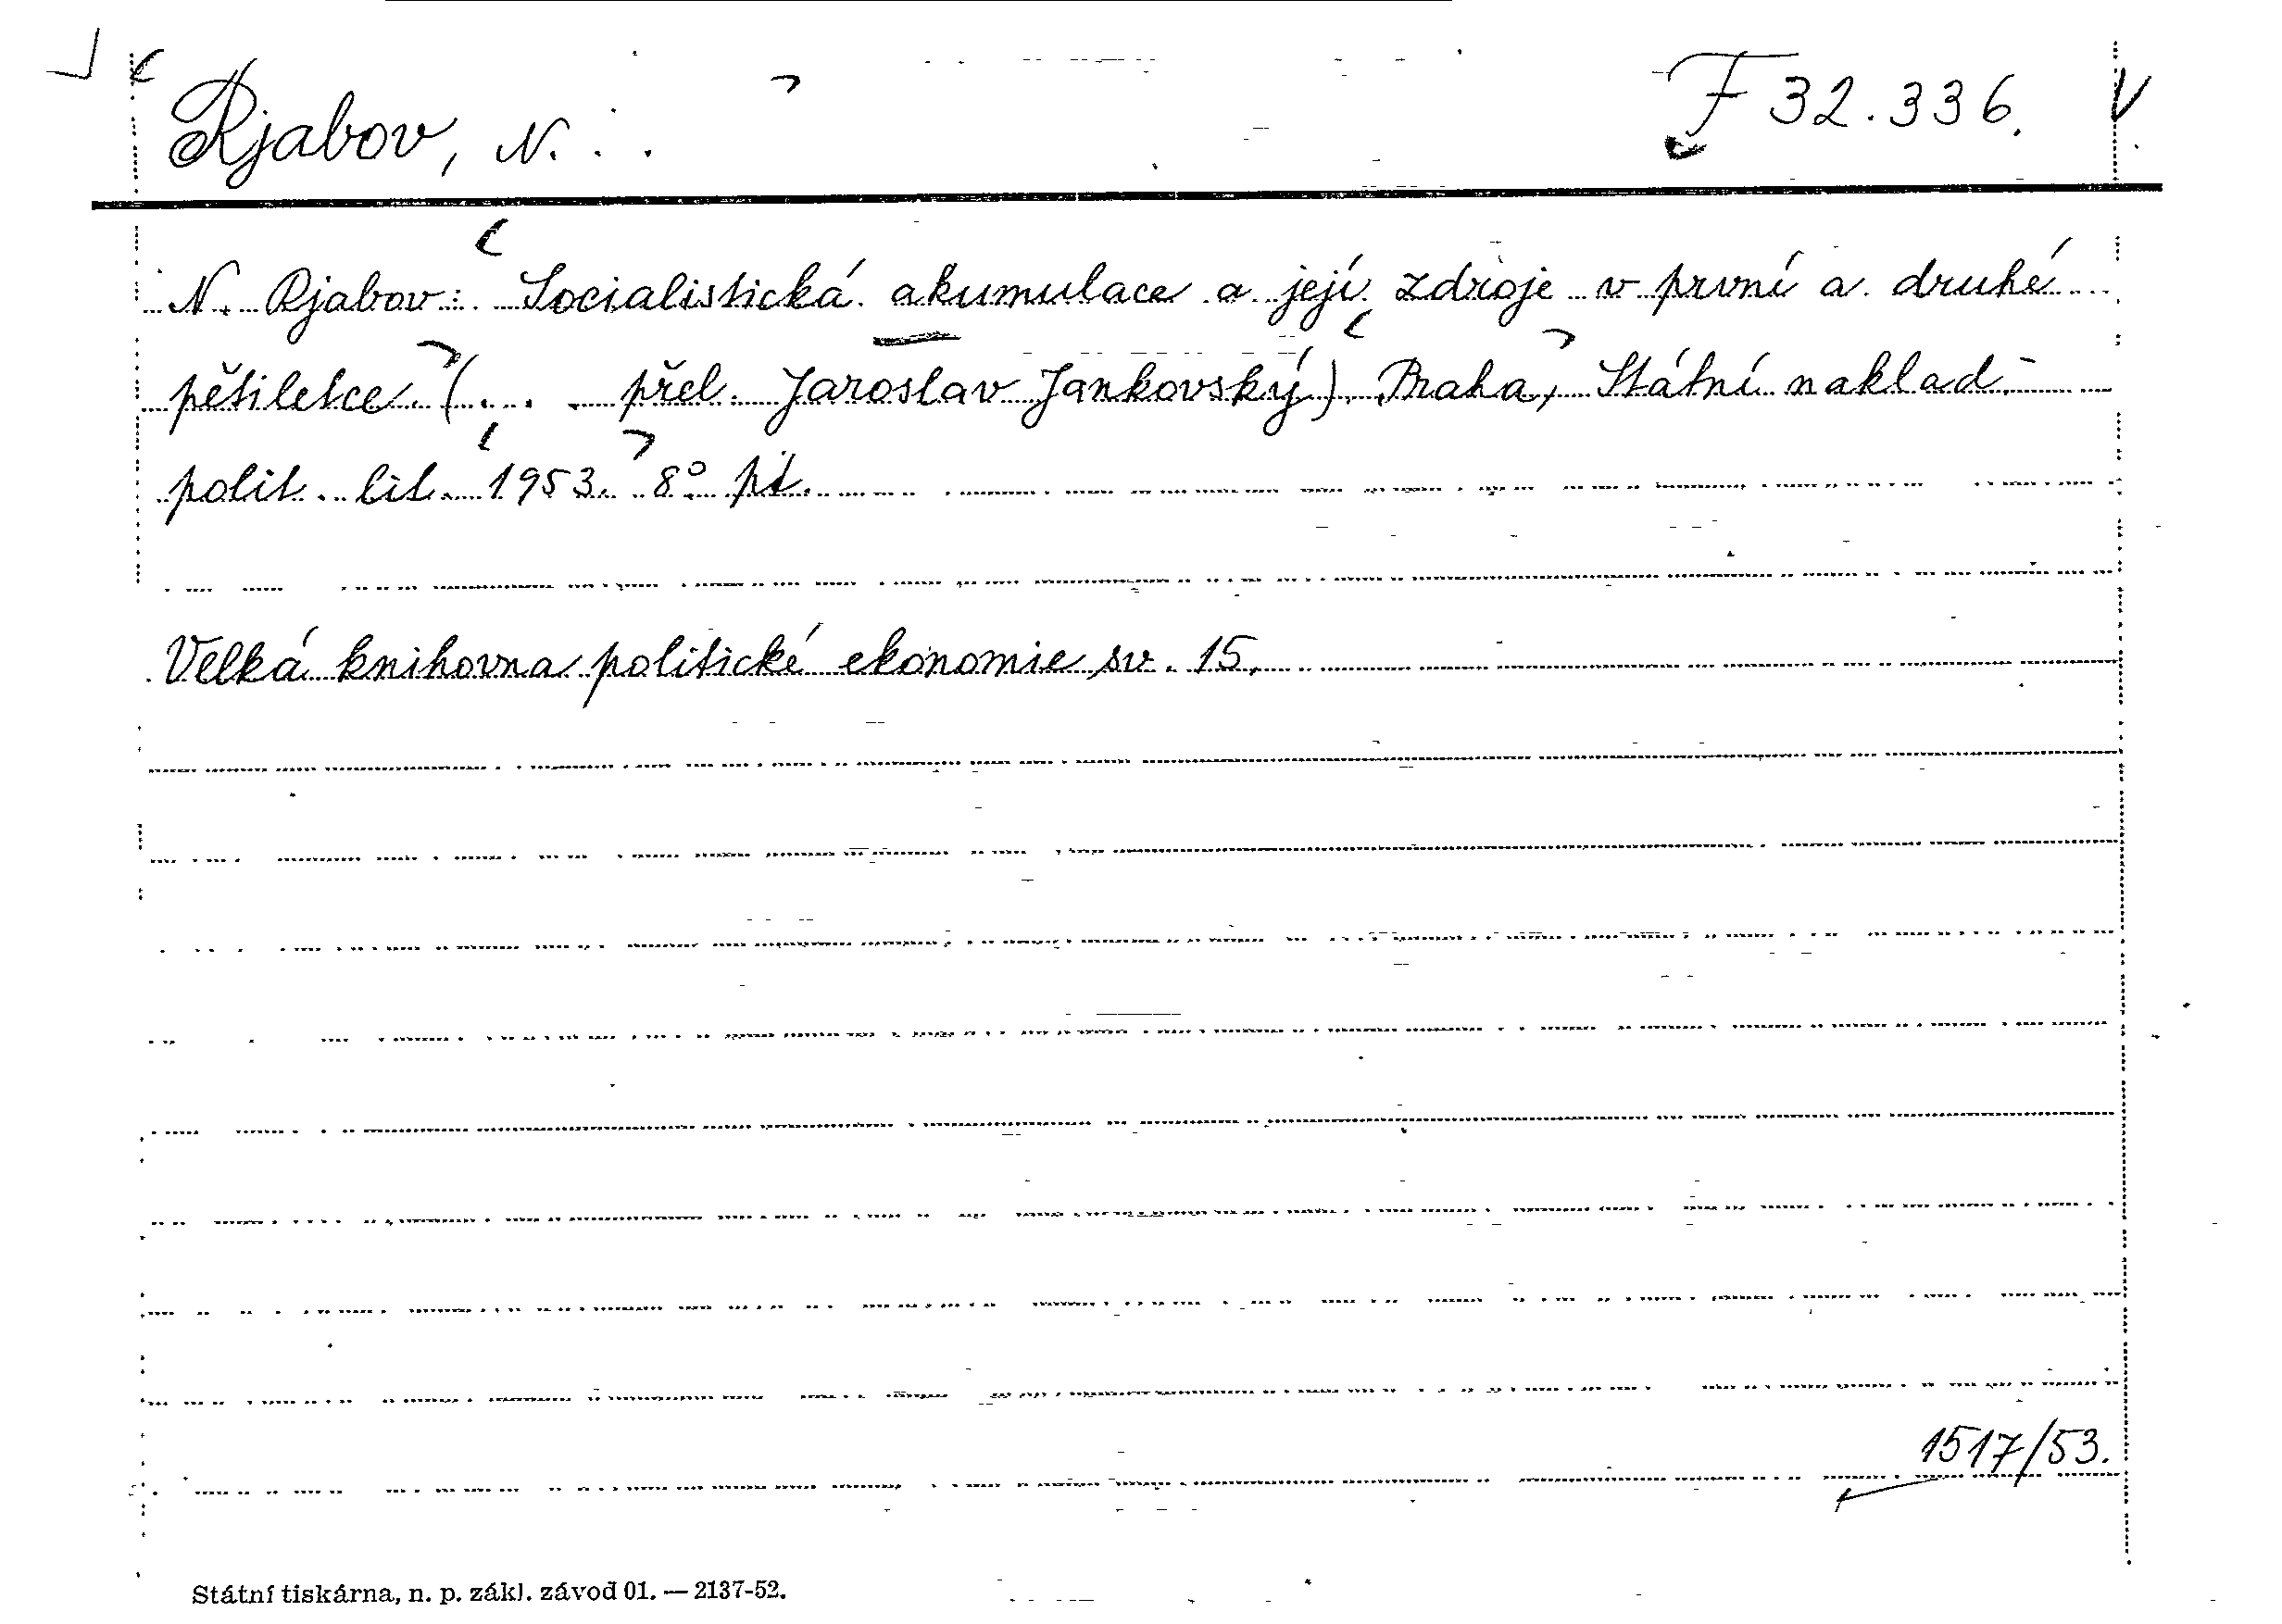 Rjabov, N. . .
F 32.336.
N. Rjabov: Socialistická akumulace a její zdroje v první a druhé
pětiletce. (... přel. Jaroslav Jankovský). Praha, Státní naklad.
polit. lit. 1953. 8°
Velká knihovna politické ekonomie sv. 15.
1517/53.
Státní tiskárna, n. p. zákl. závod 01. — 2137-52.